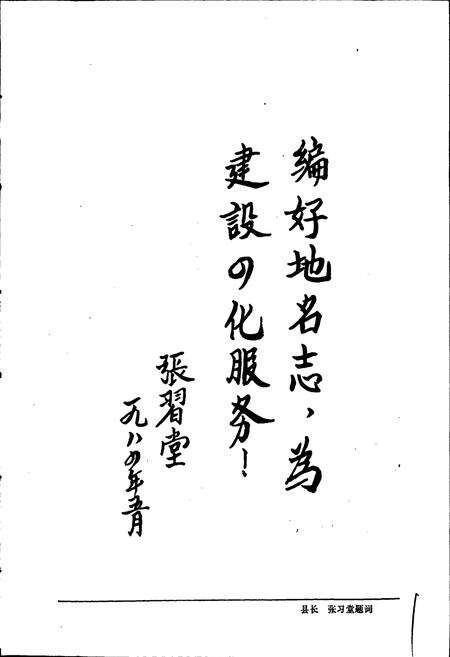 编好地名志，為
建設四化服务！
張習堂
一九八四年五月
县长 张习堂题词